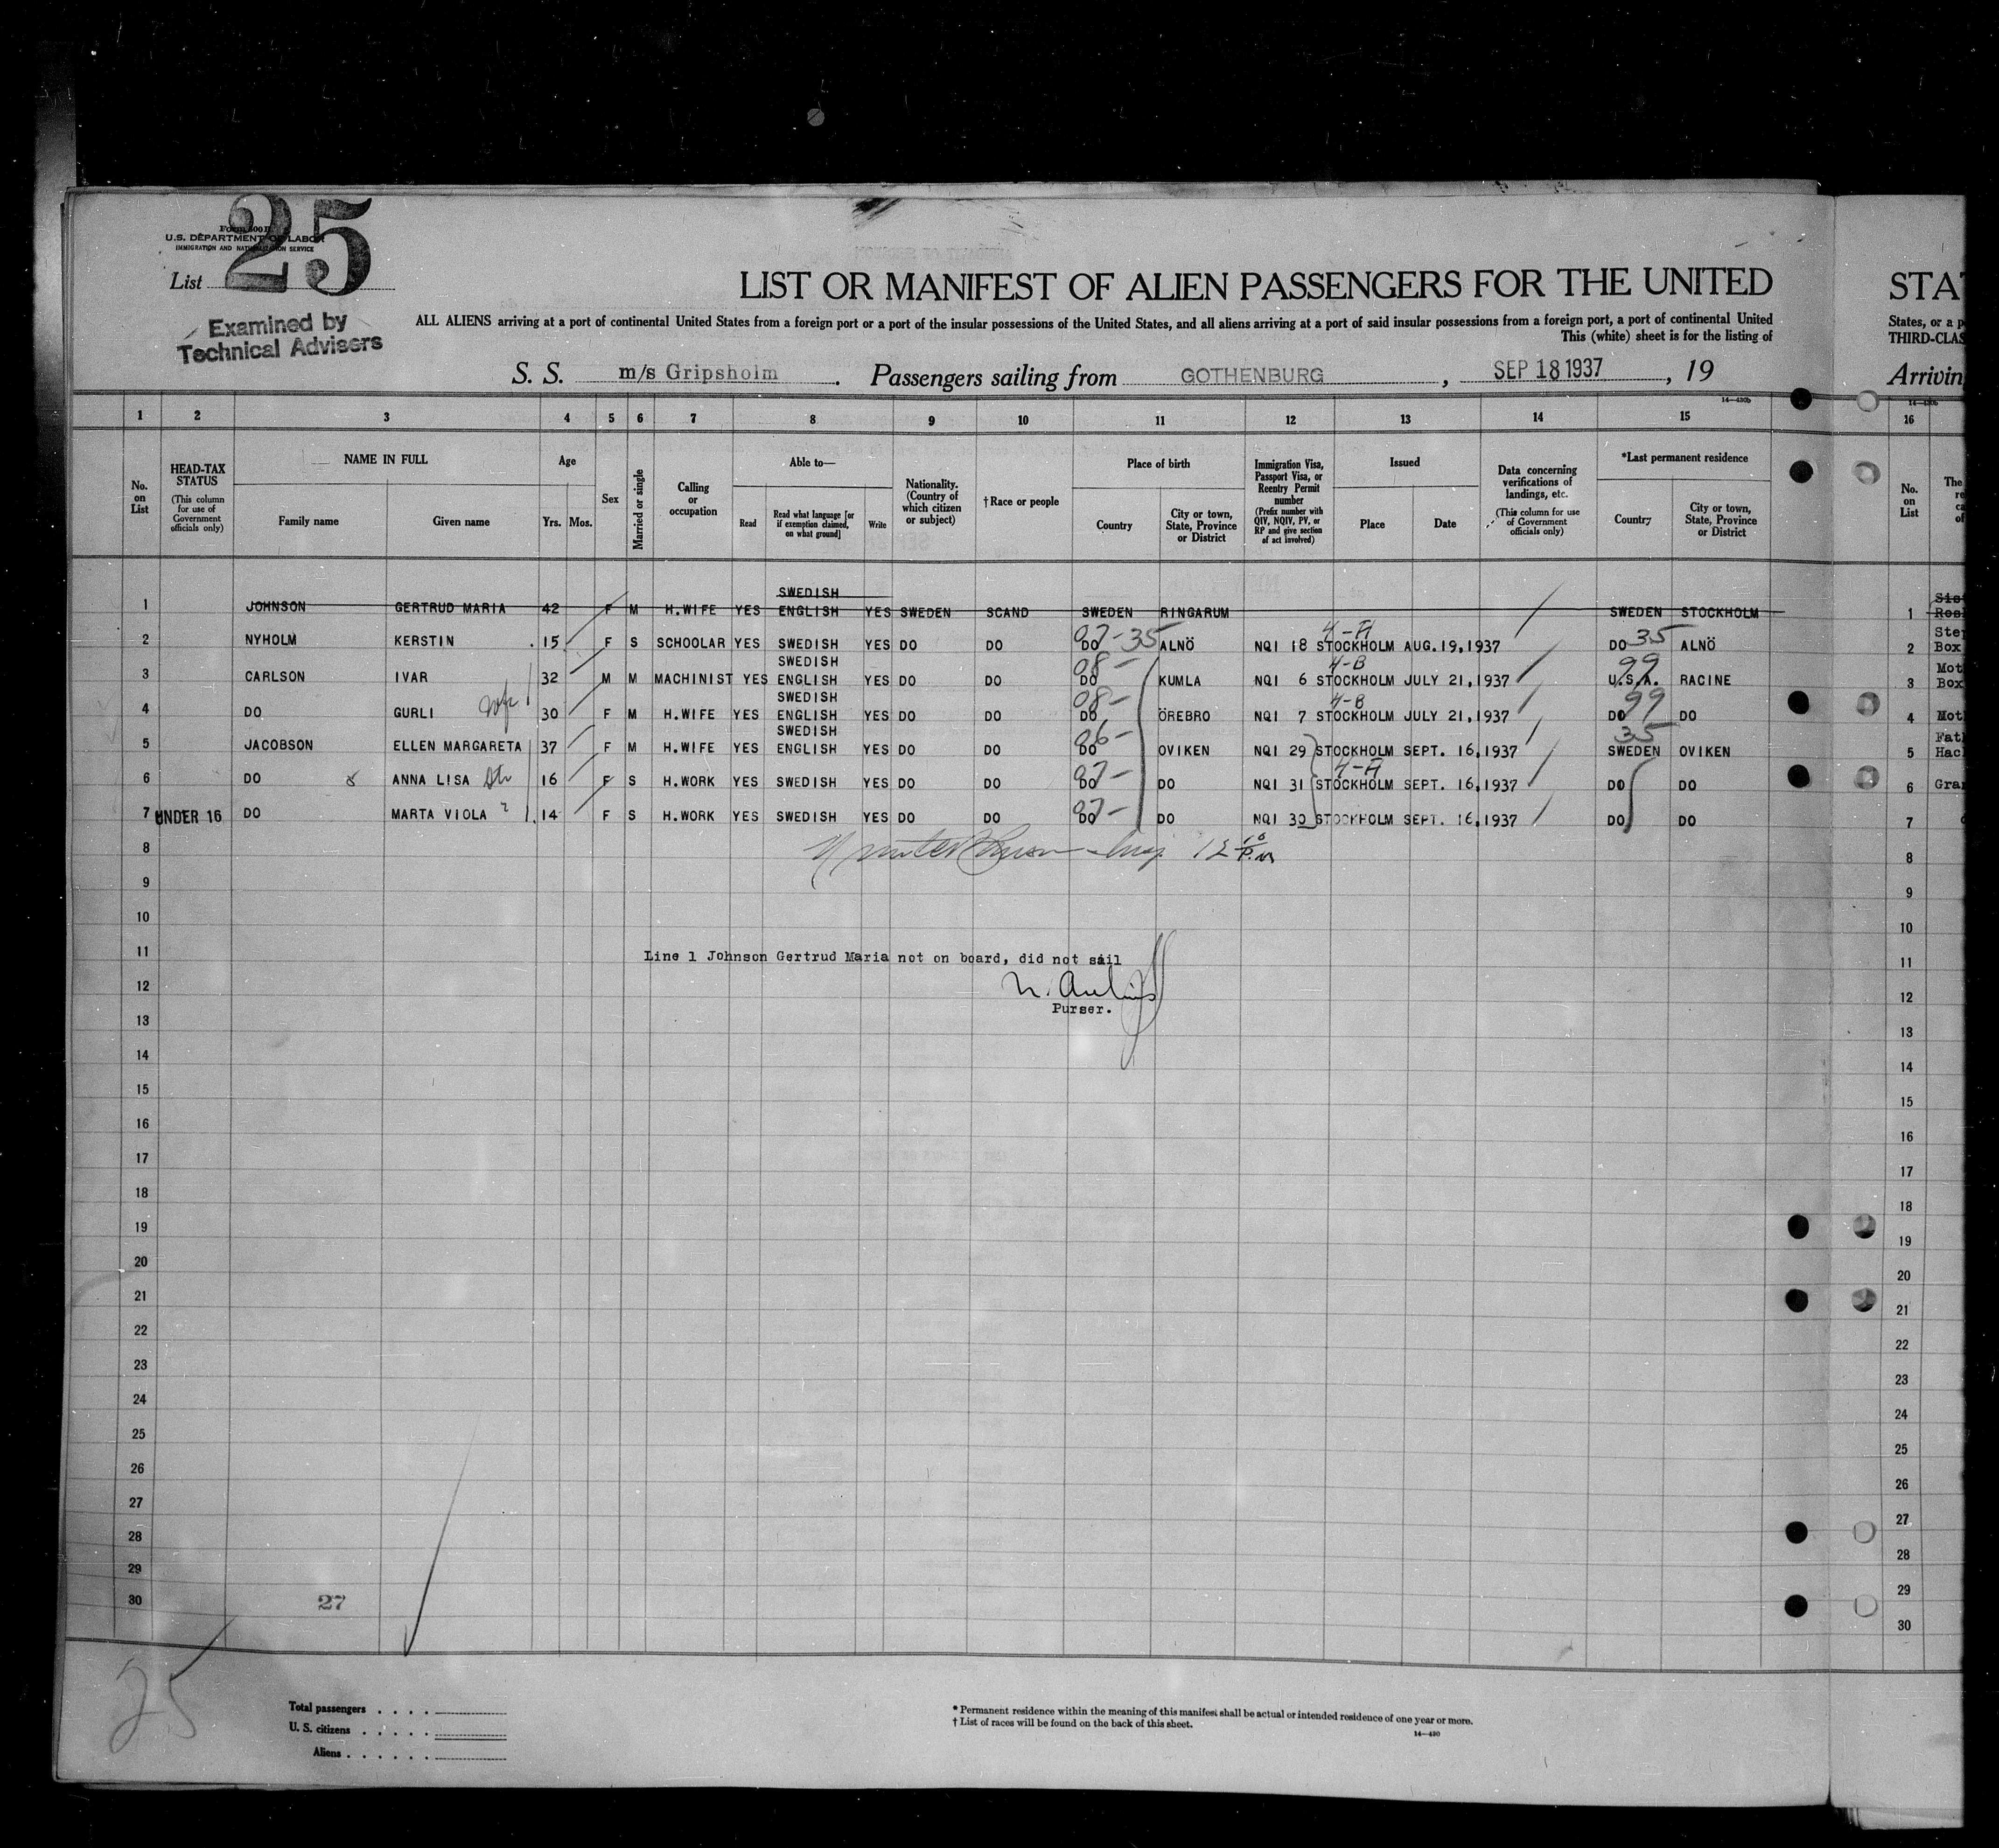 25
Form 500 B
U.S. DEPARTMENT OF LABOR
IMMIGRATION AND NATURALIZATION SERVICE
List
Examined by
Technical Advisers
LIST OR MANIFEST OF ALIEN PASSENGERS FOR THE UNITED
STA
ALL ALIENS arriving at a port of continental United States from a foreign port or a port of the insular possessions of the United States, and all aliens arriving at a port of said insular possessions from a foreign port, a port of continental United
States, or a p
This (white) sheet is for the listing of
THIRD-CLAS
S. S. m/s Gripsholm. Passengers sailing from GOTHENBURG, SEP 18 1937, 19
Arrivin
14—430b
1 2 3 4 5 6 7 8 9 10 11 12 13 14 15 16
No. on List
HEAD-TAX STATUS (This column for use of Government officials only)
NAME IN FULL
Family name
Given name
Age
Yrs. Mos.
Sex
Married or single
Calling or occupation
Able to—
Read
Read what language [or if exemption claimed, on what ground]
Write
Nationality. (Country of which citizen or subject)
†Race or people
Place of birth
Country
City or town, State, Province or District
Immigration Visa, Passport Visa, or Reentry Permit number (Prefix number with QIV, NQIV, PV, or RP and give section of act involved)
Issued
Place
Date
Data concerning verifications of landings, etc. (This column for use of Government officials only)
*Last permanent residence
Country
City or town, State, Province or District
No. on List
1 JOHNSON GERTRUD MARIA 42 F M H.WIFE YES SWEDISH ENGLISH YES SWEDEN SCAND SWEDEN RINGARUM SWEDEN STOCKHOLM 1 Sis
2 NYHOLM KERSTIN 15 F S SCHOOLAR YES SWEDISH YES DO DO DO 07-35 ALNÖ NQI 18 STOCKHOLM 4-A AUG.19,1937 DO 35 ALNÖ 2 Ste Box
3 CARLSON IVAR 32 M M MACHINIST YES SWEDISH ENGLISH YES DO DO DO 08- KUMLA NQI 6 STOCKHOLM 4-B JULY 21,1937 U.S.A. 99 RACINE 3 Mot Box
4 DO GURLI wfe 30 F M H.WIFE YES SWEDISH ENGLISH YES DO DO DO 08- ÖREBRO NQI 7 STOCKHOLM 4-B JULY 21,1937 DO 99 DO 4 Mot
5 JACOBSON ELLEN MARGARETA 37 F M H.WIFE YES SWEDISH ENGLISH YES DO DO DO 06- OVIKEN NQI 29 STOCKHOLM SEPT. 16,1937 SWEDEN 35 OVIKEN 5 Fat Hac
6 DO ANNA LISA Dtr 16 F S H.WORK YES SWEDISH YES DO DO DO 07- DO NQI 31 STOCKHOLM 4-A SEPT. 16,1937 DO DO 6 Gra
7 UNDER 16 DO MARTA VIOLA 14 F S H.WORK YES SWEDISH YES DO DO DO 07- DO NQI 30 STOCKHOLM SEPT. 16,1937 DO DO 7
8 8
9 9
10 10
11 Line 1 Johnson Gertrud Maria not on board, did not sail 11
12 12
Purser.
13 13
14 14
15 15
16 16
17 17
18 18
19 19
20 20
21 21
22 22
23 23
24 24
25 25
26 26
27 27
28 28
29 29
30 27 30
25
Total passengers . . . .
U. S. citizens . . . . .
Aliens . . . . . .
* Permanent residence within the meaning of this manifest shall be actual or intended residence of one year or more.
† List of races will be found on the back of this sheet.
14—430